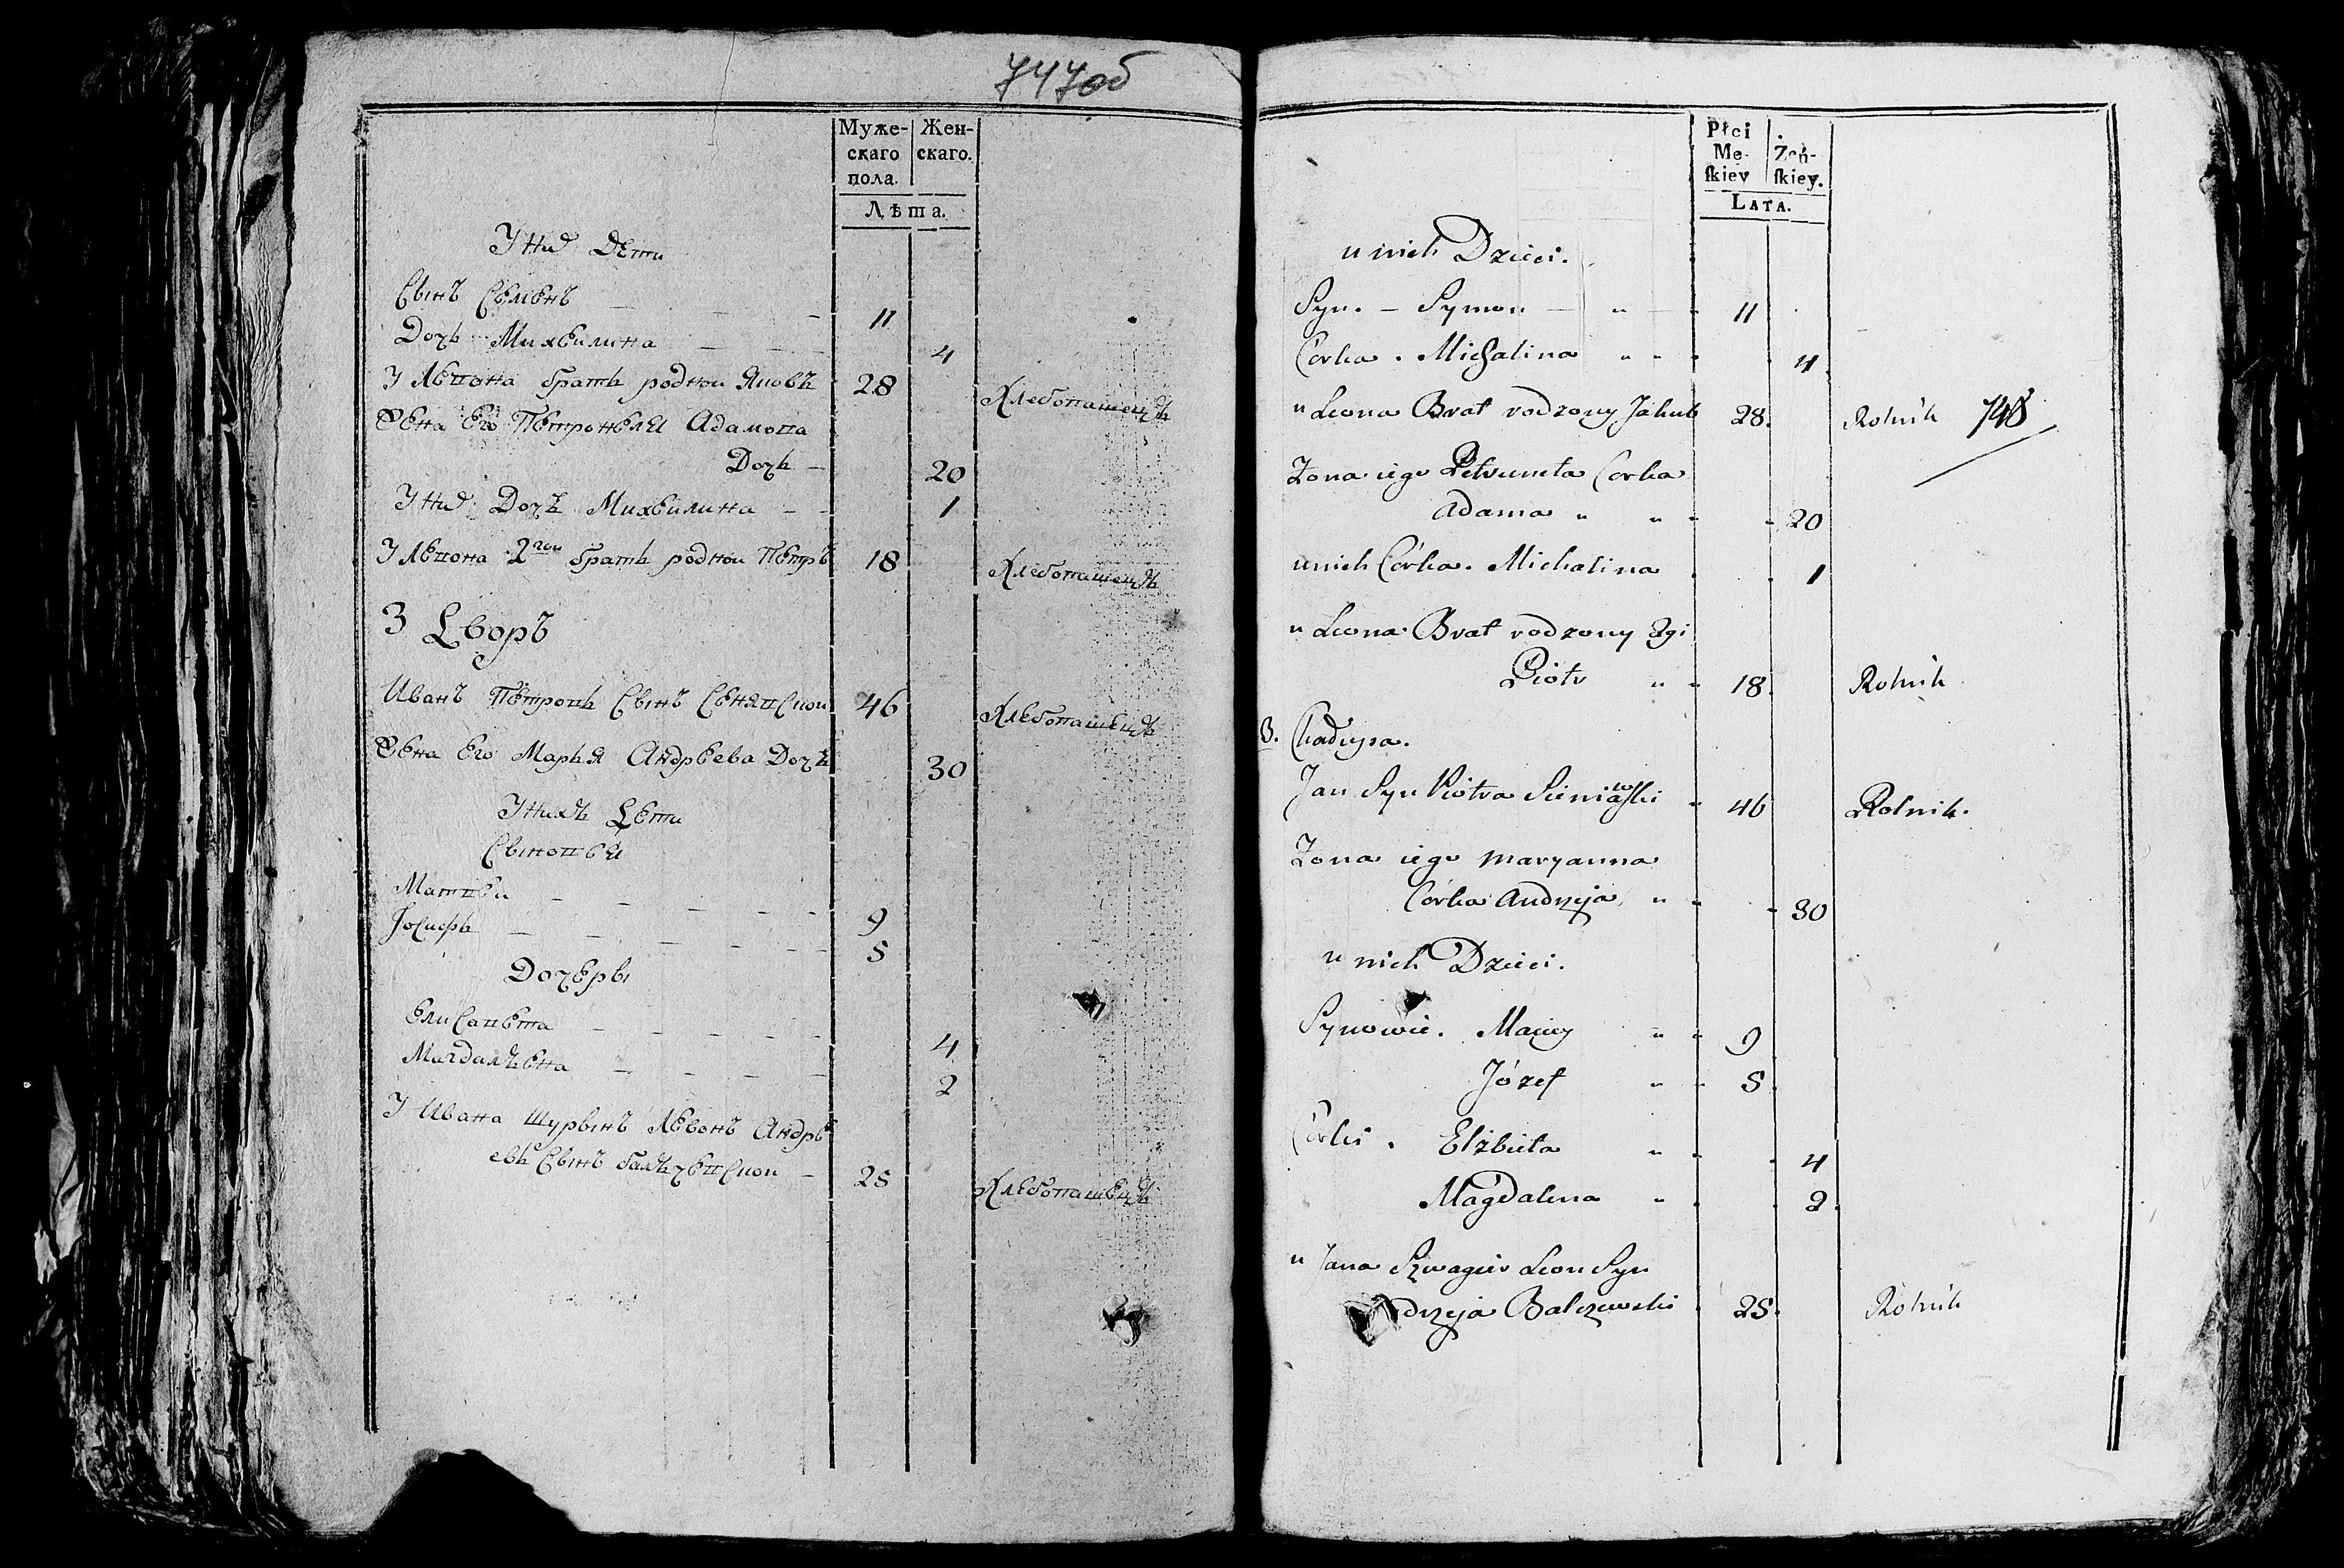 747об
Муже- Жен-
скаго скаго.
пола.
Лѣта.
У них Дети
Сынъ Семенъ 11
Дочь Михвилина 4
У Левона братъ роднои Яковъ 28 Хлебопашецъ
Жена Его Петронеля Адамова
Дочь 20
У них Дочь Михвилина 1
У Левона 2гои братъ роднои Петръ 18 Хлебопашецъ
3 Дворъ
Иванъ Петровъ Сынъ Сенявскои 46 Хлебопашецъ
Жена Его Марья Андреева Дочь 30
У нихъ Дети
Сыновья
Матвеи 9
Іосифъ 5
Дочеры
Елисавета 4
Магдалѣена 2
У Ивана Шурынъ Левонъ Андре
евъ Сынъ балъчевскои 25 Хлебопашецъ
Płci
Mę- Żeń-
ſkiey ſkiey.
LATA.
u nich Dzieci.
Syn. – Symon 11
Corka. Michalina 4
u Leona Brat rodzony Jakub 28. Rolnik 748
Zona iego Petruneta Corka
Adama 20
u nich Córka. Michalina 1
u Leona Brat rodzony 2gi
Piotr 18. Rolnik
3. Chałupa.
Jan Syn Piotra Sieniawski 46 Rolnik.
Zona iego Maryanna
Córka Andrzeja 30
u nich Dzieci.
Synowie. Maciey 9
Józef 5
Córki. Elżbieta 4
Magdalena 2
u Jana Szwagier Leon Syn
drzeja Balczewski 25. Rolnik